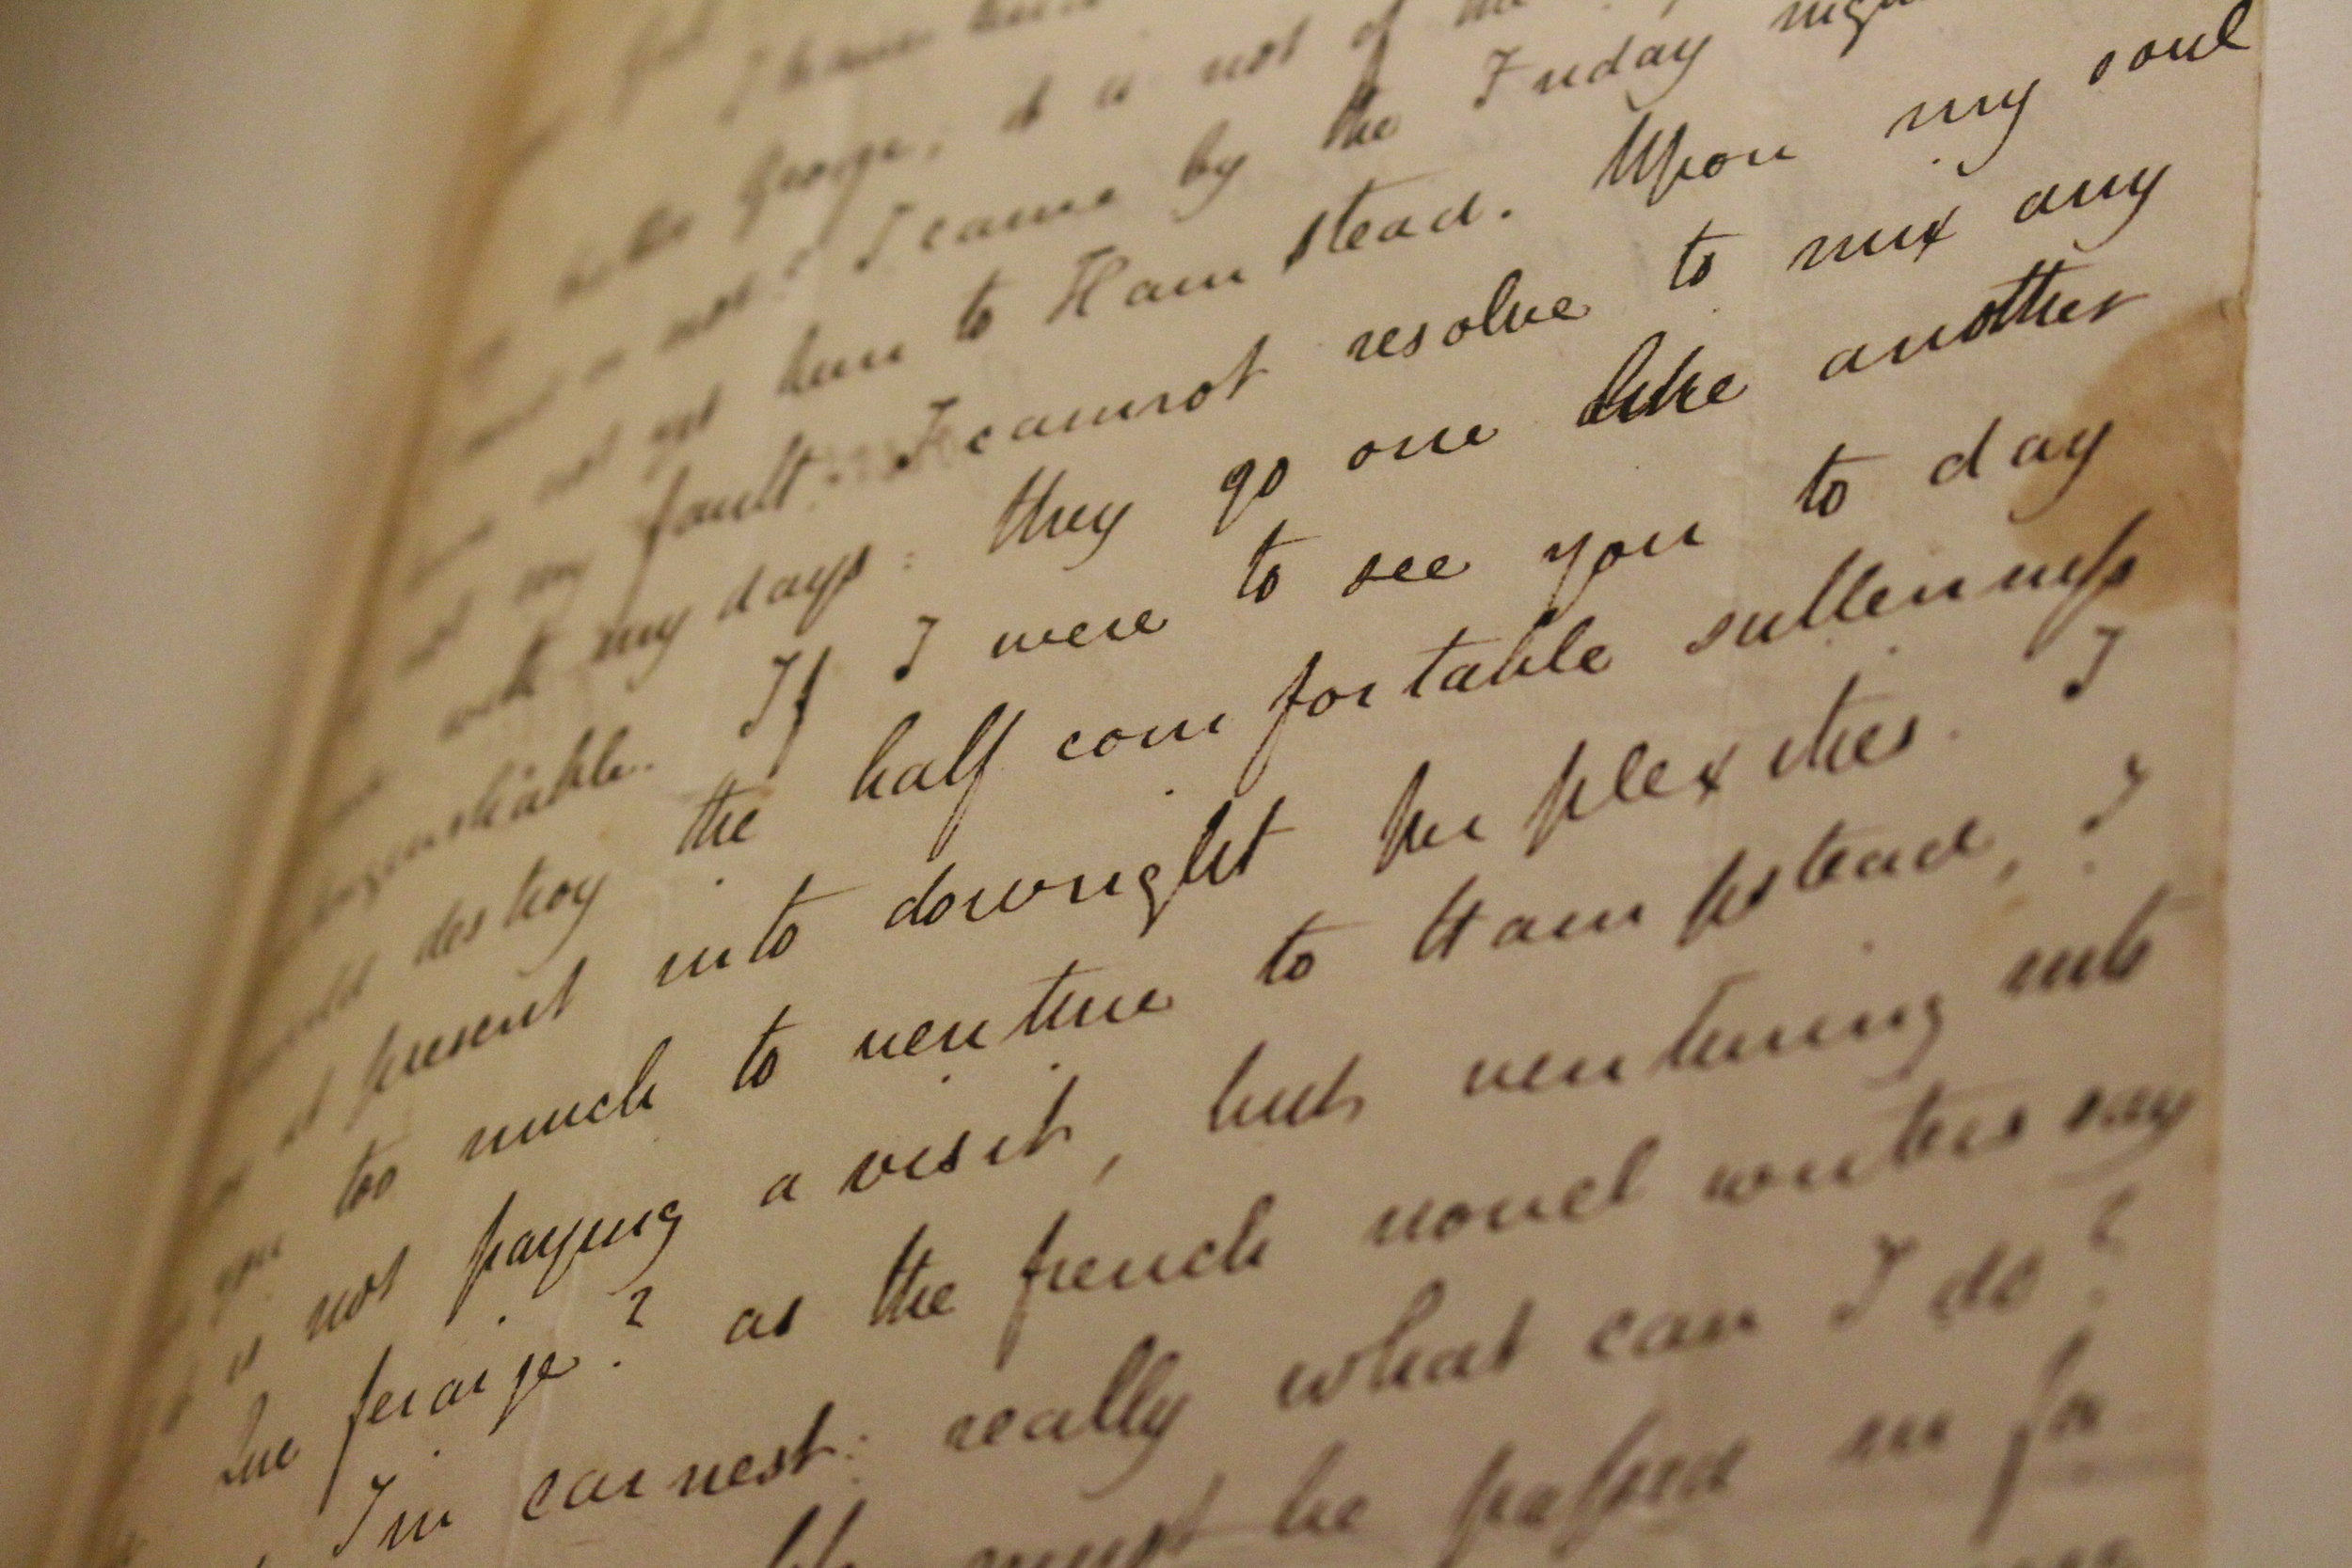 I have
George, it is not of
not? I came by the Friday
not yet been to Hamstead. Upon my soul
not my fault. I cannot resolve to mix any
with my days: they go one like another
If I were to see you to day
destroy the half comfortable sullenness
at present into downright perplexities. I
you too much to venture to Hampstead, I
it is not paying a visit, but venturing into
Que feraije? as the french novel writers say
I'm earnest: really what can I do?
must be passed in fa